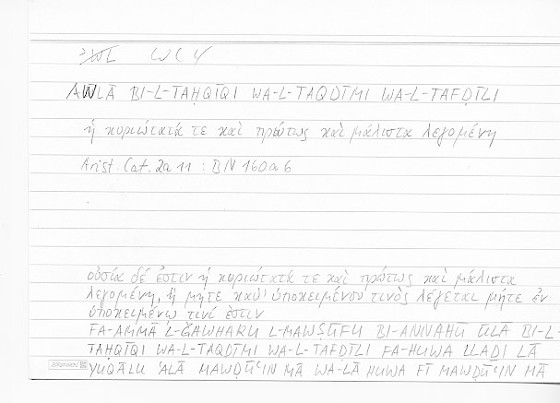 WLY
AWLĀ BI-L-TAḤQĪQI WA-L-TAQDĪMI WA-L-TAFḌĪLI
ἡ κυριώτατά τε καὶ πρώτως καὶ μάλιστα λεγομένη
Arist. Cat. 2a 11 : BN 160a6
οὐσία δέ ἐστιν ἡ κυριώτατά τε καὶ πρώτως καὶ μάλιστα
λεγομένη, ἣ μήτε καθ' ὑποκειμένου τινὸς λέγεται μήτε ἐν
ὑποκειμένῳ τινί ἐστιν
FA-AMMĀ L-ǦAWHARU L-MAWṢŪFU BI-ANNAHŪ ŪLĀ BI-L-
TAḤQĪQI WA-L-TAQDĪMI WA-L-TAFḌĪLI FA-HUWA LLAḎĪ LĀ
YUQĀLU ʿALĀ MAWḌŪʿIN MĀ WA-LĀ HUWA FĪ MAWḌŪʿIN MĀ